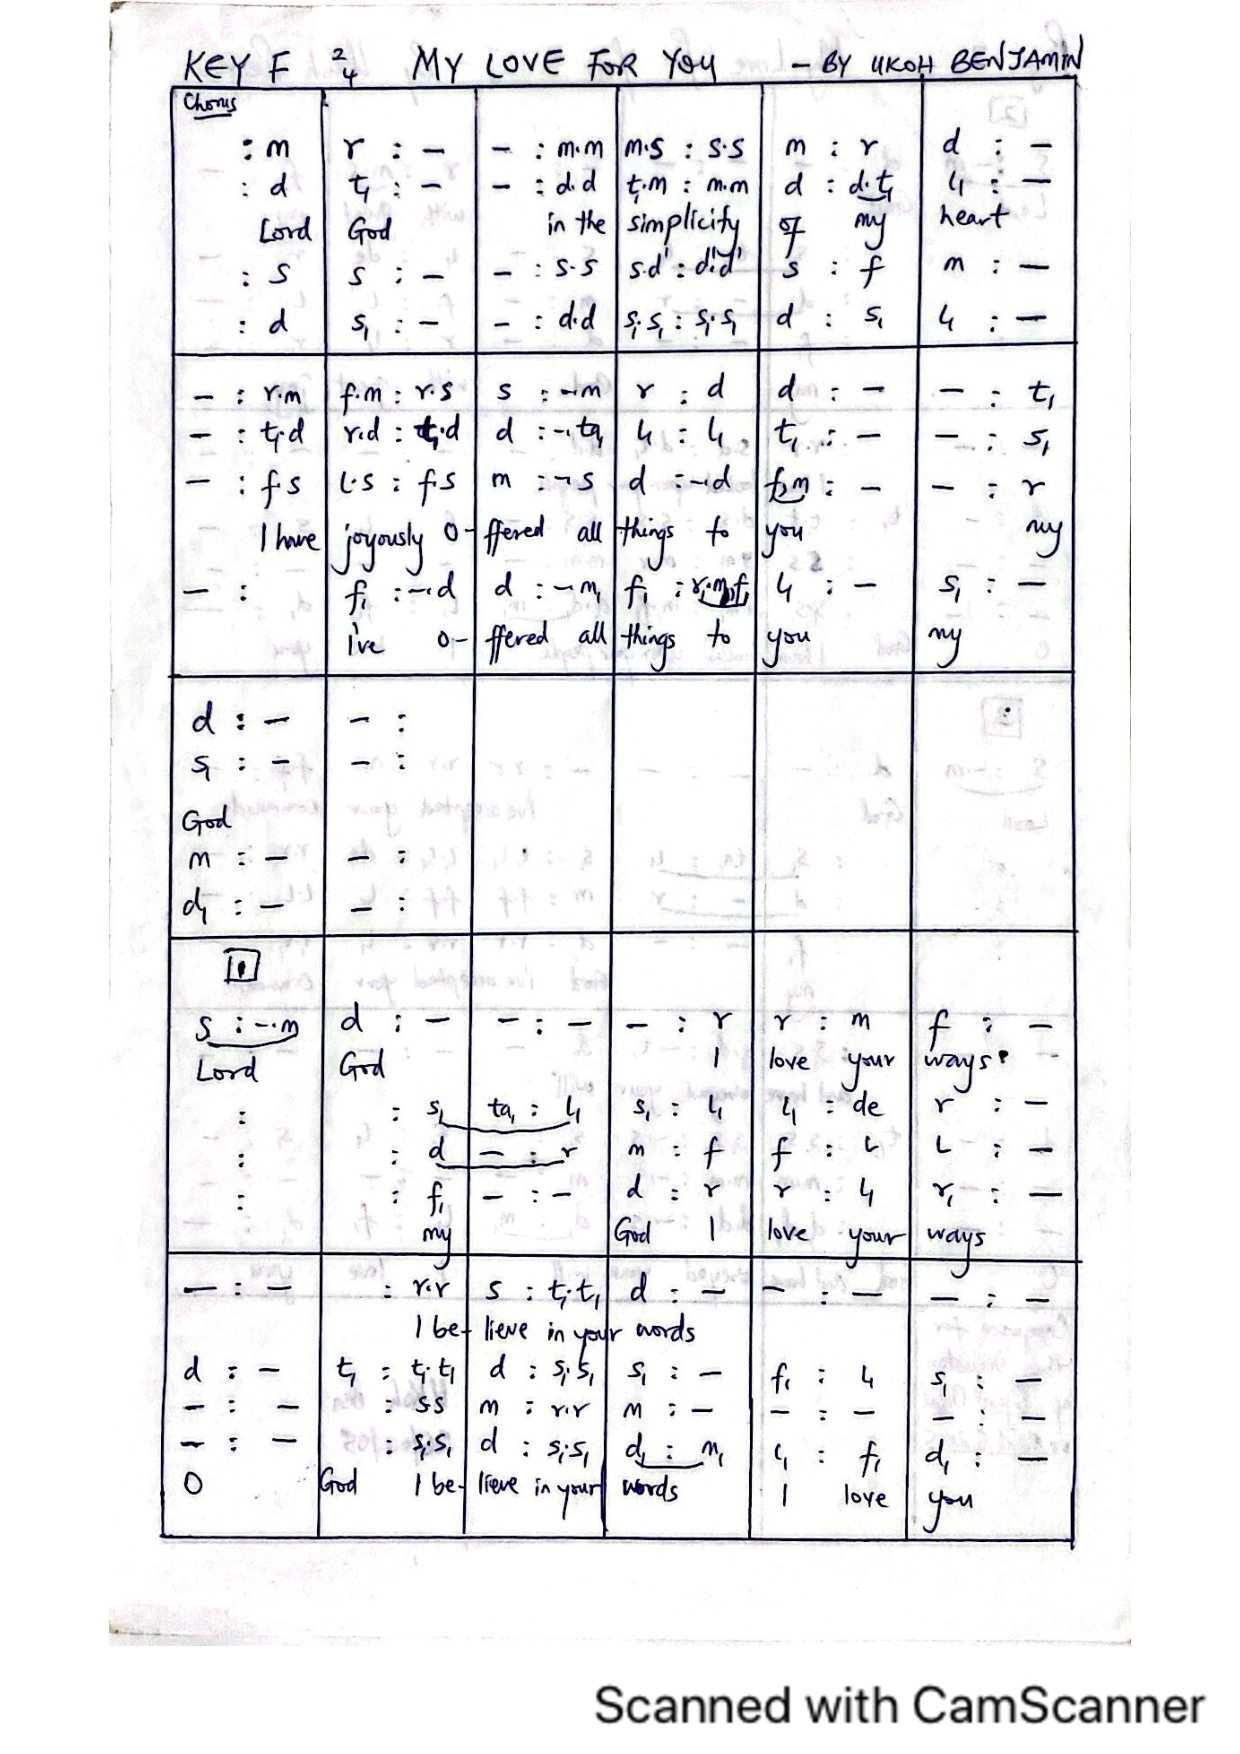 KEY F 2/4 MY LOVE FOR YOU – BY UKOH BENJAMIN
Chorus
: m | r : – | – : m.m | m.s : s.s | m : r | d : –
: d | t₁ : – | – : d.d | t₁.m : m.m | d : d.t₁ | l₁ : –
Lord | God | in the | simplicity | of my | heart
: s | s : – | – : s.s | s.d' : d'.d' | s : f | m : –
: d | s₁ : – | – : d.d | s₁.s₁ : s₁.s₁ | d : s₁ | l₁ : –
– : r.m | f.m : r.s | s : –.m | r : d | d : – | – : t₁
– : t₁.d | r.d : t₁.d | d : –.ta₁ | l₁ : l₁ | t₁ : – | – : s₁
– : f.s | l.s : f.s | m : –.s | d : –.d | f.m : – | – : r
I have | joyously o- | ffered all | things to | you | my
– : | f₁ : –.d | d : –.m₁ | f₁ : r₁.m₁.f₁ | l₁ : – | s₁ : –
I've o- | ffered all | things to | you | my
d : – | – :
s₁ : – | – :
God
m : – | – :
d₁ : – | – :
1
s : –.m | d : – | – : – | – : r | r : m | f : –
Lord | God | I | love your | ways
: | : s₁ | ta₁ : l₁ | s₁ : l₁ | l₁ : de | r : –
: | : d | – : r | m : f | f : l | l : –
: | : f₁ | – : – | d : r | r : l₁ | r₁ : –
my | God I | love your | ways
– : – | : r.r | s : t₁.t₁ | d : – | – : – | – : –
I be- | lieve in your words
d : – | t₁ : t₁.t₁ | d : s₁.s₁ | s₁ : – | f₁ : l₁ | s₁ : –
– : – | : s.s | m : r.r | m : – | – : – | – : –
– : – | : s₁.s₁ | d : s₁.s₁ | d₁ : m₁ | l₁ : f₁ | d₁ : –
O | God I be- | lieve in your | words | I love | you
Scanned with CamScanner